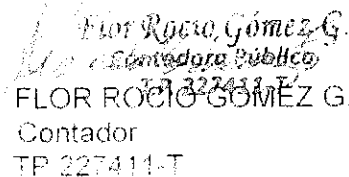 Flor Rocio Gómez G.
Contadora Pública
T.P. 227411-T
FLOR ROCIO GOMEZ G.
Contador
TP 227411-T